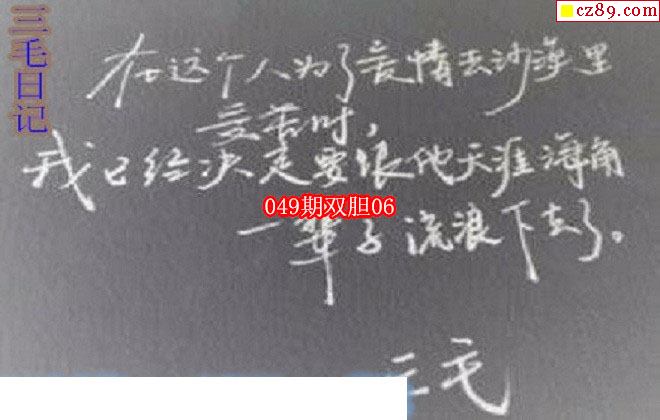 三毛日记
cz89.com
在这个人为了爱情去沙漠里
受苦时,
我已经决定要跟他天涯海角
049期双胆06
一辈子流浪下去了。
三毛